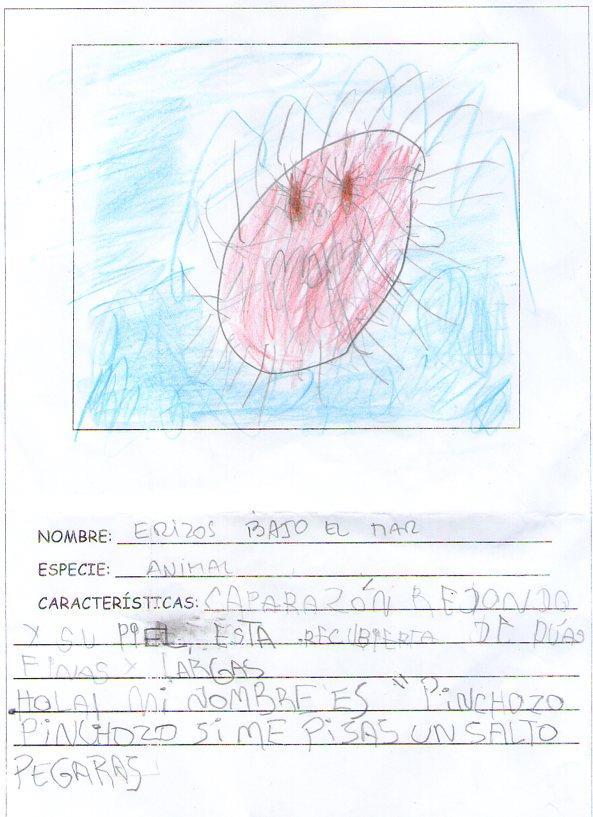 NOMBRE: ERIZOS BAJO EL MAR
ESPECIE: ANIMAL
CARACTERÍSTICAS: CAPARAZÓN REDONDO
Y SU PIEL ESTA RECUBIERTA DE PÚAS
FINAS Y LARGAS
HOLA! MI NOMBRE ES "PINCHOZO
PINCHOZO SI ME PISAS UN SALTO
PEGARAS